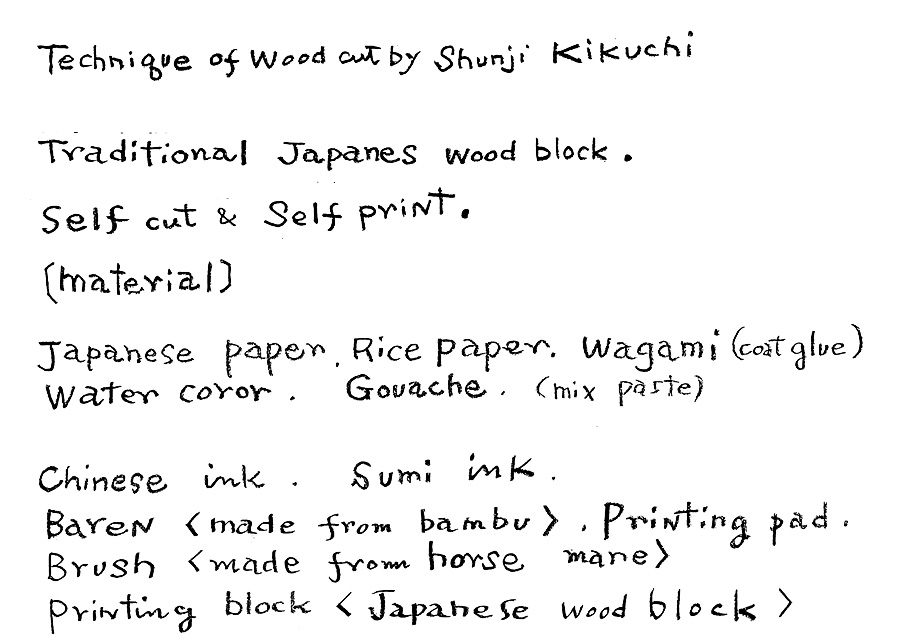 Technique of Wood cut by Shunji Kikuchi
Traditional Japanes wood block.
Self cut & Self print.
(material)
Japanese paper. Rice paper. Wagami (coat glue)
Water coror. Gouache. (mix paste)
Chinese ink. Sumi ink.
Baren <made from bambu>. Printing pad.
Brush <made from horse mane>
Printing block <Japanese wood block>